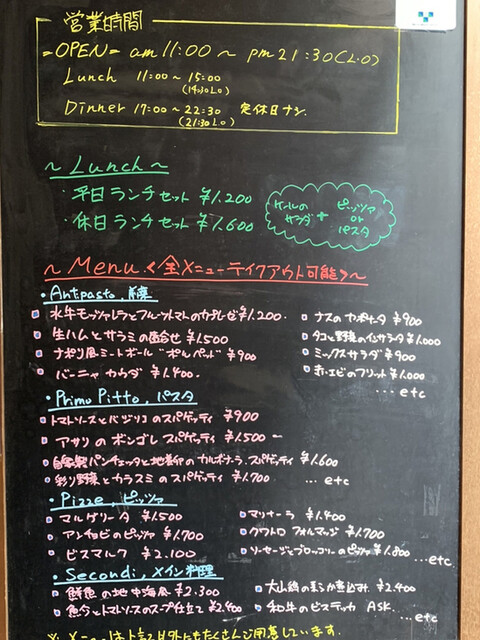 営業時間
=OPEN= am 11:00 ～ pm 21:30 (L.O)
Lunch 11:00～15:00
(14:30LO)
Dinner 17:00～22:30 定休日ナシ
(21:30LO)
～Lunch～
・平日ランチセット ¥1.200
・休日ランチセット ¥1.600
ケールのサラダ + ピッツァ or パスタ
～Menu〈全メニューテイクアウト可能〉～
・Antipasto, 前菜
水牛モッツァレラとフルーツトマトのカプレーゼ ¥1.200.
ナスのカポナータ ¥900
生ハムとサラミの盛合せ ¥1.500
タコと野菜のインサラータ ¥1.000
ナポリ風ミートボール"ポルペッテ" ¥900
ミックスサラダ ¥900
バーニャカウダ ¥1.400.
赤エビのフリット ¥1.000
... etc
・Primo Pitto, パスタ
トマトソースとバジリコのスパゲッティ ¥900
アサリのボンゴレスパゲッティ ¥1.500
自家製パンチェッタと地卵のカルボナーラ.スパゲッティ ¥1.600
彩り野菜とカラスミのスパゲッティ ¥1.700 ... etc
・Pizze, ピッツァ
マルゲリータ ¥1.500
マリナーラ ¥1.400
アンチョビのピッツァ ¥1.700
クワトロフォルマッジ ¥1.700
ビスマルク ¥2.100
ソーセージとブロッコリーのピッツァ ¥1.800
...etc.
・Secondi, メイン料理
鮮魚の地中海風 ¥2.300
大山鶏の煮込み ¥2.400
魚介とトマトソースのスープ仕立て ¥2.400
和牛のビステッカ ASK.
...etc
※メニューは上記以外にもたくさんご用意しています.